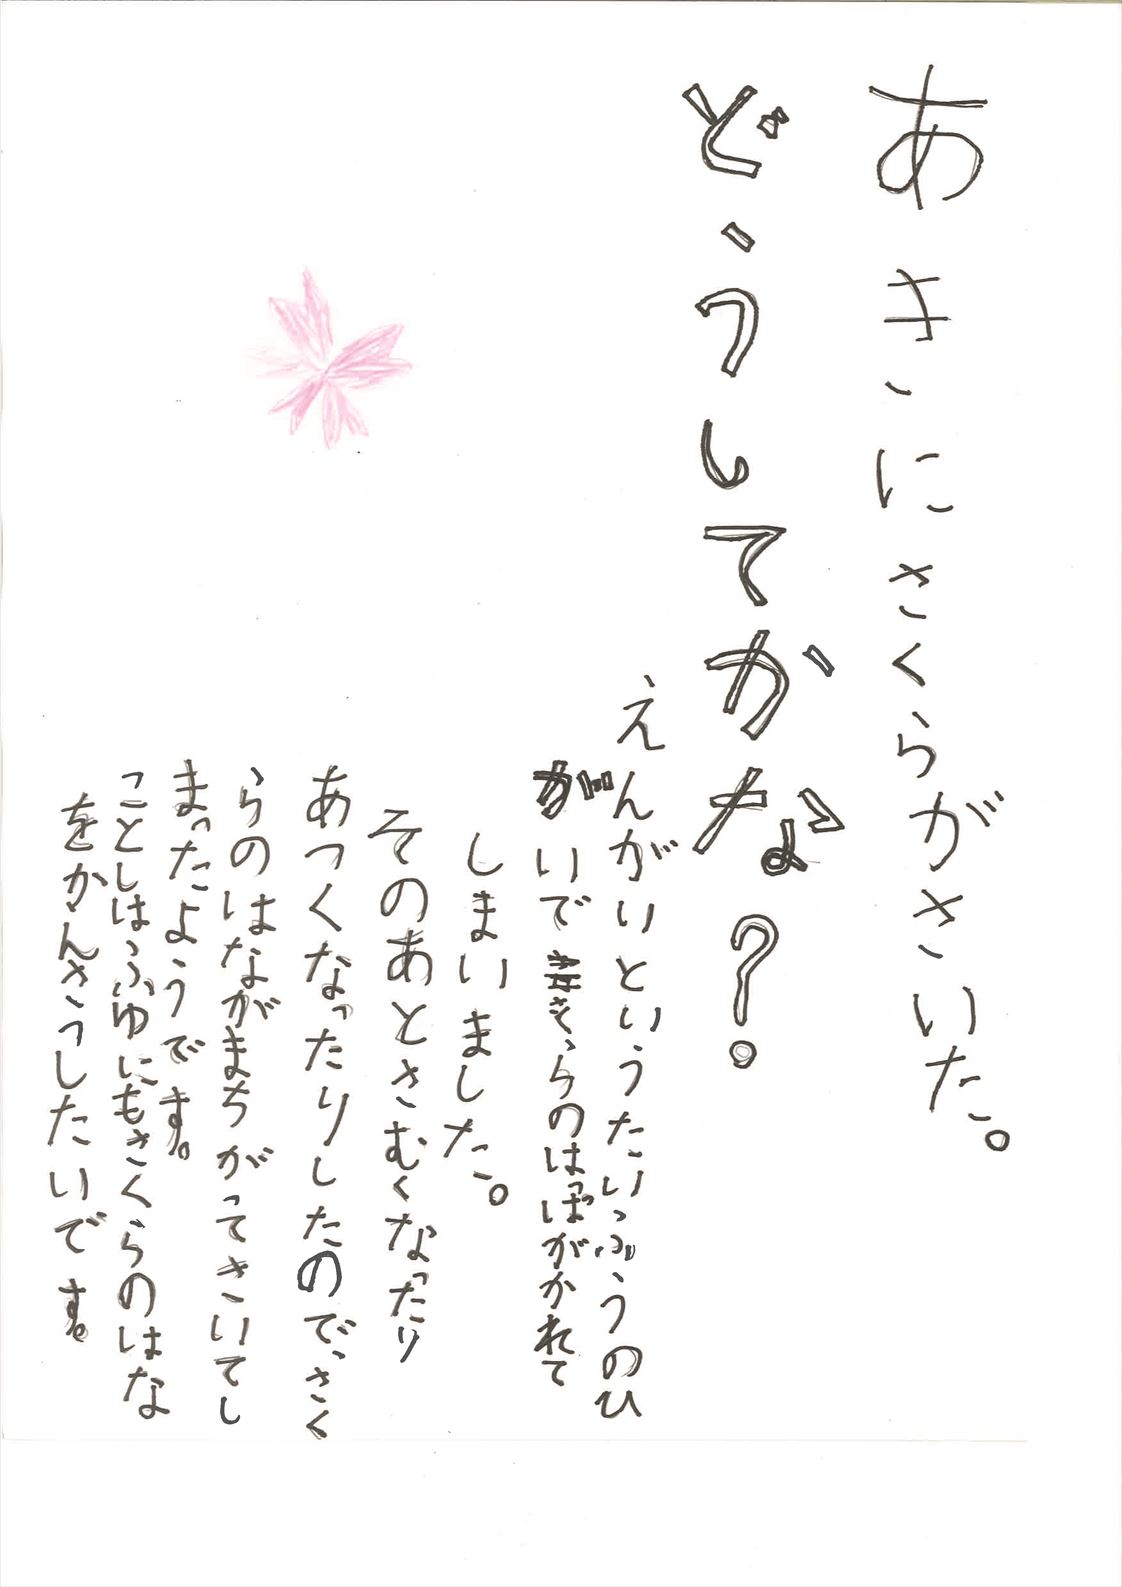 あきにさくらがさいた。
どうしてかな？
えんがいというたいふうのひ
がいでさくらのはっぱがかれて
しまいました。
そのあとさむくなったり
あつくなったりしたのでさく
らのはながまちがってさいてし
まったようです。
ことしはふゆにもさくらのはな
をかんさつしたいです。